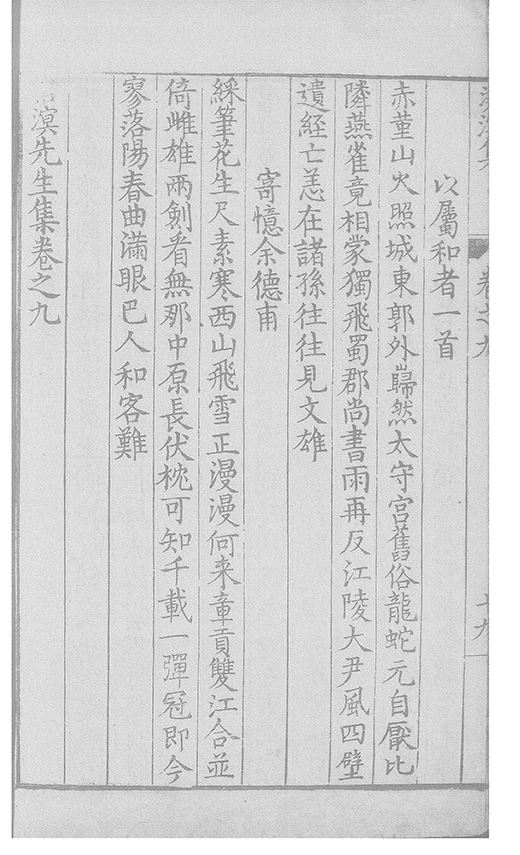 以屬和者一首
赤菫山火照城東郭外巋然太守宮舊俗龍蛇元自厭比
隣燕雀竟相蒙獨飛蜀郡尚書雨再反江陵大尹風四壁
遺経亡恙在諸孫往往見文雄
寄憶余德甫
綵筆花生尺素寒西山飛雪正漫漫何来章貢雙江合並
倚雌雄兩劍看無那中原長伏枕可知千載一彈冠即今
寥落陽春曲滿眼巴人和客難
溟先生集卷之九